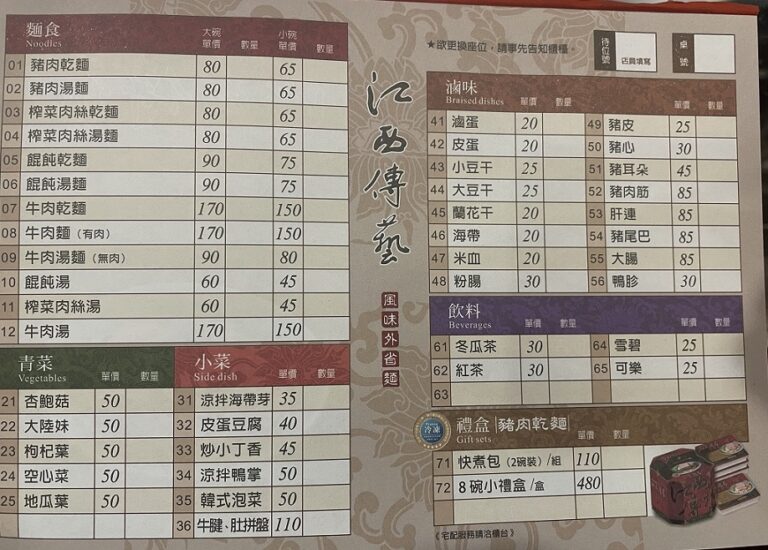 麵食 大碗 小碗
Noodles 單價 數量 單價 數量
01 豬肉乾麵 80 65
02 豬肉湯麵 80 65
03 榨菜肉絲乾麵 80 65
04 榨菜肉絲湯麵 80 65
05 餛飩乾麵 90 75
06 餛飩湯麵 90 75
07 牛肉乾麵 170 150
08 牛肉麵（有肉） 170 150
09 牛肉湯麵（無肉） 90 80
10 餛飩湯 60 45
11 榨菜肉絲湯 60 45
12 牛肉湯 170 150
青菜 單價 數量
Vegetables
21 杏鮑菇 50
22 大陸妹 50
23 枸杞葉 50
24 空心菜 50
25 地瓜葉 50
小菜 單價 數量
Side dish
31 涼拌海帶芽 35
32 皮蛋豆腐 40
33 炒小丁香 45
34 涼拌鴨掌 50
35 韓式泡菜 50
36 牛腱、肚拼盤 110
江西傳藝
風味外省麵
★欲更換座位，請事先告知櫃檯。
待位號 店員填寫
桌號
滷味 單價 數量 單價 數量
Braised dishes
41 滷蛋 20 49 豬皮 25
42 皮蛋 20 50 豬心 30
43 小豆干 25 51 豬耳朵 45
44 大豆干 25 52 豬肉筋 85
45 蘭花干 20 53 肝連 85
46 海帶 20 54 豬尾巴 85
47 米血 20 55 大腸 85
48 粉腸 30 56 鴨胗 30
飲料 單價 數量 單價 數量
Beverages
61 冬瓜茶 30 64 雪碧 25
62 紅茶 30 65 可樂 25
63
冷凍 禮盒 豬肉乾麵 單價 數量
Gift sets
71 快煮包（2碗裝）/組 110
72 8碗小禮盒/盒 480
《宅配服務請洽櫃台》